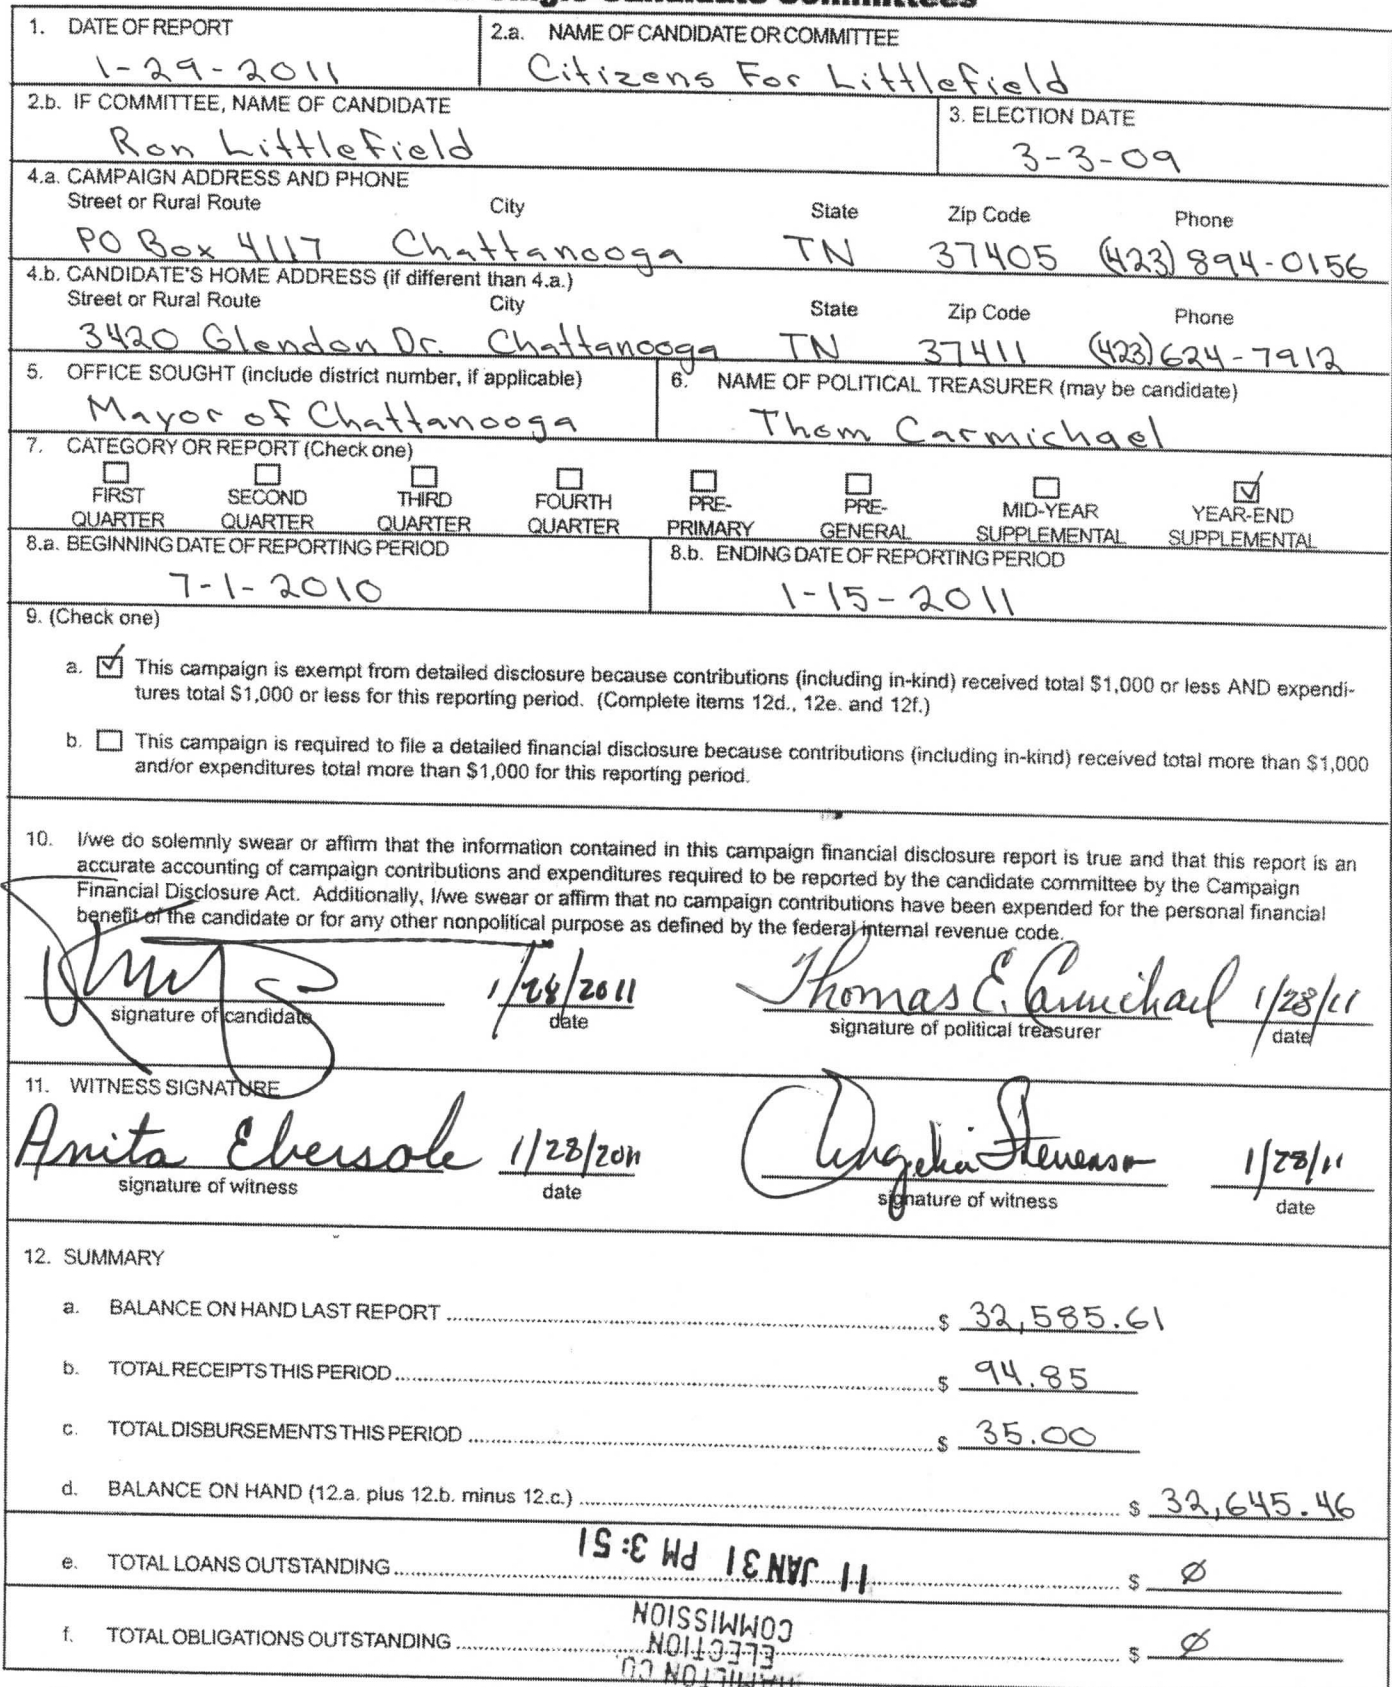 Single Candidate Committees
1. DATE OF REPORT
1-29-2011
2.a. NAME OF CANDIDATE OR COMMITTEE
Citizens For Littlefield
2.b. IF COMMITTEE, NAME OF CANDIDATE
Ron Littlefield
3. ELECTION DATE
3-3-09
4.a. CAMPAIGN ADDRESS AND PHONE
Street or Rural Route City State Zip Code Phone
PO Box 4117 Chattanooga TN 37405 (423) 894-0156
4.b. CANDIDATE'S HOME ADDRESS (if different than 4.a.)
Street or Rural Route City State Zip Code Phone
3420 Glendon Dr. Chattanooga TN 37411 (423) 624-7912
5. OFFICE SOUGHT (include district number, if applicable)
Mayor of Chattanooga
6. NAME OF POLITICAL TREASURER (may be candidate)
Thom Carmichael
7. CATEGORY OR REPORT (Check one)
FIRST SECOND THIRD FOURTH PRE- PRE- MID-YEAR YEAR-END
QUARTER QUARTER QUARTER QUARTER PRIMARY GENERAL SUPPLEMENTAL SUPPLEMENTAL
8.a. BEGINNING DATE OF REPORTING PERIOD
7-1-2010
8.b. ENDING DATE OF REPORTING PERIOD
1-15-2011
9. (Check one)
a. This campaign is exempt from detailed disclosure because contributions (including in-kind) received total $1,000 or less AND expendi-
tures total $1,000 or less for this reporting period. (Complete items 12d., 12e. and 12f.)
b. This campaign is required to file a detailed financial disclosure because contributions (including in-kind) received total more than $1,000
and/or expenditures total more than $1,000 for this reporting period.
10. I/we do solemnly swear or affirm that the information contained in this campaign financial disclosure report is true and that this report is an
accurate accounting of campaign contributions and expenditures required to be reported by the candidate committee by the Campaign
Financial Disclosure Act. Additionally, I/we swear or affirm that no campaign contributions have been expended for the personal financial
benefit of the candidate or for any other nonpolitical purpose as defined by the federal internal revenue code.
1/28/2011 Thomas E. Carmichael 1/28/11
signature of candidate date signature of political treasurer date
11. WITNESS SIGNATURE
Anita Ebersole 1/28/2011 Angelia Stevenson 1/28/11
signature of witness date signature of witness date
12. SUMMARY
a. BALANCE ON HAND LAST REPORT $ 32,585.61
b. TOTAL RECEIPTS THIS PERIOD $ 94.85
c. TOTAL DISBURSEMENTS THIS PERIOD $ 35.00
d. BALANCE ON HAND (12.a. plus 12.b. minus 12.c.) $ 32,645.46
e. TOTAL LOANS OUTSTANDING $ Ø
11 JAN 31 PM 3:51
f. TOTAL OBLIGATIONS OUTSTANDING $ Ø
HAMILTON CO
ELECTION
COMMISSION